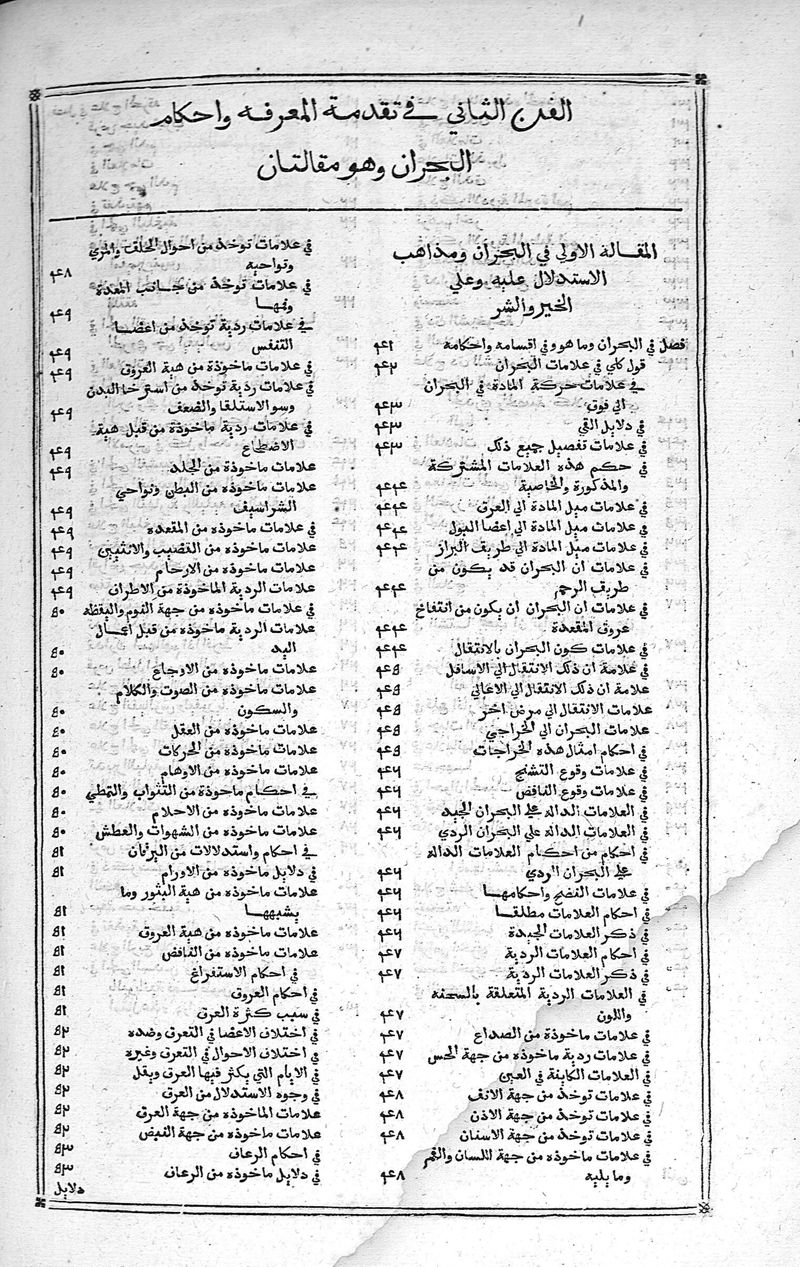 الفن الثاني في تقدمة المعرفه واحكام
البحران وهو مقالتان
المقالة الاولي في البحران ومذاهب
الاستدلال عليه وعلي
الخير والشر
فصل في البحران وما هو وفي اقسامه واحكامه ۴۴۱
قول كلي في علامات البحران ۴۴۲
في علامات حركة المادة في البحران
الي فوق ۴۴۳
في دلايل القي ۴۴۳
في علامات تفصيل جميع ذلك ۴۴۳
في حكم هذه العلامات المشتركة
والمذكورة والخاصية ۴۴۴
في علامات ميل المادة الي العرق ۴۴۴
في علامات ميل المادة الي اعضا البول ۴۴۴
في علامات ميل المادة الي طريق البراز ۴۴۴
في علامات ان البحران قد يكون من
طريق الرحم ۴۴۴
في علامات ان البحران ان يكون من انتفاخ
عروق المقعدة ۴۴۴
في علامات كون البحران بالانتقال ۴۴۴
في علامة ان ذلك الانتقال الي الاسافل ۴۴۵
علامة ان ذلك الانتقال الي الاعالي ۴۴۵
علامات الانتقال الي مرض اخر ۴۴۵
علامات البحران الي الخراجي ۴۴۵
في احكام امثال هذه الخراجات ۴۴۵
في علامات وقوع التشنج ۴۴۶
في علامات وقوع النافض ۴۴۶
في العلامات الداله علي البحران الجيد ۴۴۶
في العلامات الداله علي البحران الردي ۴۴۶
في احكام من احكام العلامات الداله
علي البحران الردي ۴۴۶
في علامات النضج واحكامها ۴۴۶
في احكام العلامات مطلقا ۴۴۶
في ذكر العلامات الجيدة ۴۴۶
في احكام العلامات الردية ۴۴۷
في ذكر العلامات الردية ۴۴۷
في العلامات الردية المتعلقة بالسحنه
واللون ۴۴۷
في علامات ماخوذة من الصداع ۴۴۷
في علامات ردية ماخوذه من جهة الحس ۴۴۷
في العلامات الكاينة في العين ۴۴۷
في علامات توخذ من جهة الانف ۴۴۸
في علامات توخذ من جهة الاذن ۴۴۸
في علامات توخذ من جهة الاسنان ۴۴۸
في علامات ماخوذه من جهة اللسان والفم
وما يليه ۴۴۸
في علامات توخذ من احوال الحلق والمري
ونواحيه ۴۴۸
في علامات توخذ من جانب المعدة
وفمها ۴۴۹
في علامات ردية توخذ من اعضا
التنفس ۴۴۹
في علامات ماخوذة من هية العروق ۴۴۹
في علامات ردية توخذ من استرخا البدن
وسو الاستلقا والضعف ۴۴۹
في علامات ردية ماخوذة من قبل هية
الاضطجاع ۴۴۹
علامات ماخوذة من الجلد ۴۴۹
علامات ماخوذه من البطن ونواحي
الشراسيف ۴۴۹
في علامات ماخوذه من المقعده ۴۴۹
علامات ماخوذه من القضيب والانثيين ۴۴۹
علامات ماخوذه من الارحام ۴۴۹
علامات الردية الماخوذة من الاطراف ۴۴۹
في علامات ماخوذه من جهة النوم واليقظه ۴۵۰
علامات الردية ماخوذة من قبل اعمال
اليد ۴۵۰
علامات ماخوذة من الاوجاع ۴۵۰
علامات ماخوذه من الصوت والكلام
والسكون ۴۵۰
علامات ماخوذه من العقل ۴۵۰
علامات ماخوذة من الحركات ۴۵۰
علامات ماخوذه من الاوهام ۴۵۰
في احكام ماخوذة من التثواب والتمطي ۴۵۰
علامات ماخوذه من الاحلام ۴۵۰
علامات ماخوذه من الشهوات والعطش ۴۵۰
في احكام واستدلالات من اليرقان ۴۵۱
في دلايل ماخوذه من الاورام ۴۵۱
علامات ماخوذه من هية البثور وما
يشبهها ۴۵۱
علامات ماخوذه من هية العروق ۴۵۱
علامات ماخوذه من النافض ۴۵۱
في احكام الاستفراغ ۴۵۱
في احكام العروق ۴۵۱
في سبب كثرة العرق ۴۵۱
في اختلاف الاعضا في التعرق وضده ۴۵۲
في اختلاف الاحوال في التعرق وغيره ۴۵۲
في الايام التي يكثر فيها العرق ويقل ۴۵۲
في وجوه الاستدلال من العرق ۴۵۲
علامات الماخوذه من جهة العرق ۴۵۲
علامات ماخوذه من جهة النبض ۴۵۲
في احكام الرعاف ۴۵۳
في دلايل ماخوذه من الرعاف ۴۵۳
دلايل